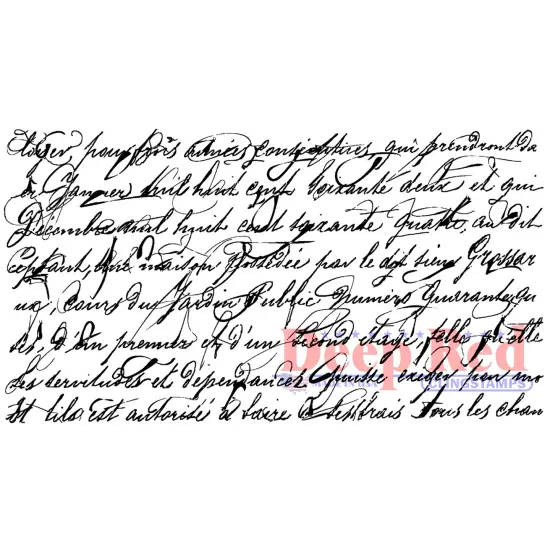 louer, pour trois années consécutives, qui prendront da
er Janvier mil huit cent soixante deux et qui
Décembre mil huit cent soixante quatre, au dit
ceptant, une maison Possédée par le dit sieur Grossar
ux, cours du Jardin Public Numéro Quarante
ses, d'un premier et d'un second étage, telle qu'elle
Deep Red
les servitudes et dépendances
RUBBER STAMPS
Et il est autorisé à faire à ses frais Tous les chan